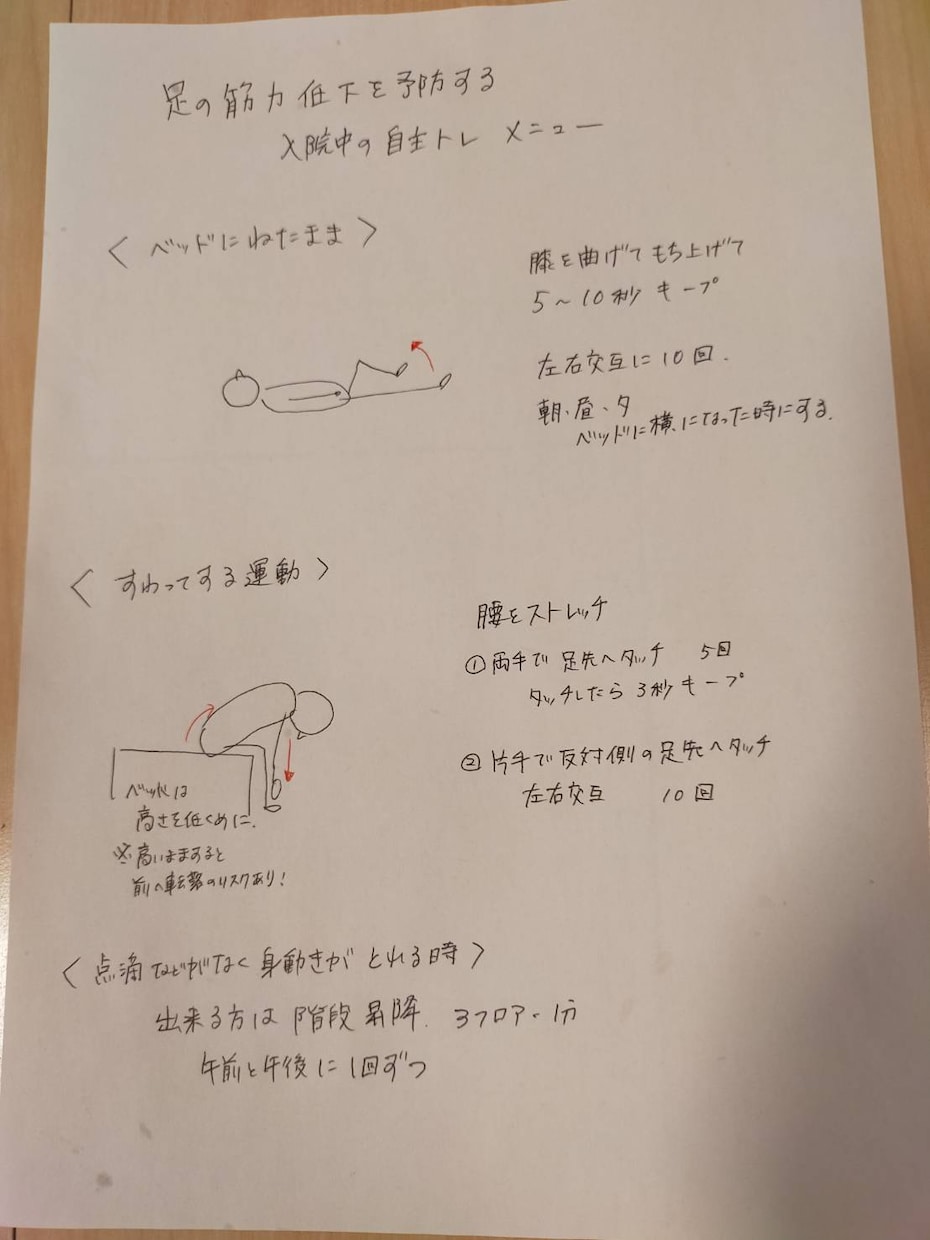 足の筋力低下を予防する
入院中の自主トレ メニュー
〈 ベッドにねたまま 〉
膝を曲げてもち上げて
5～10秒 キープ
左右交互に10回.
朝・昼・夕
ベッドに横になった時にする.
〈 すわってする運動 〉
腰をストレッチ
①両手で足先へタッチ 5回
タッチしたら3秒キープ
②片手で反対側の足先へタッチ
左右交互 10回
ベッドは
高さを低くめに.
※高いまますると
前へ転落のリスクあり!
〈点滴などがなく身動きがとれる時〉
出来る方は階段昇降. 3フロアー1分
午前と午後に1回ずつ